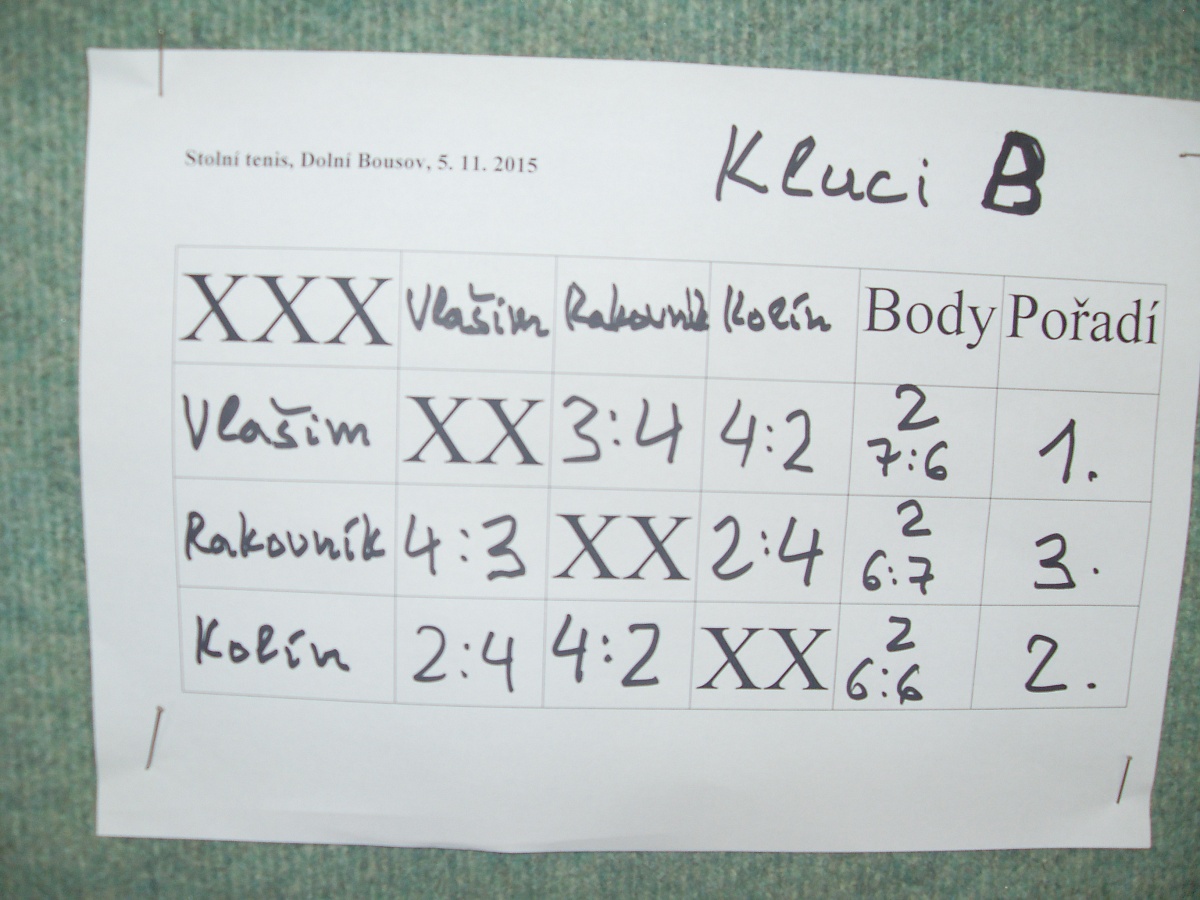 Stolní tenis, Dolní Bousov, 5. 11. 2015
Kluci B
XXX Vlašim Rakovník Kolín Body Pořadí
Vlašim XX 3:4 4:2 2 7:6 1.
Rakovník 4:3 XX 2:4 2 6:7 3.
Kolín 2:4 4:2 XX 2 6:6 2.